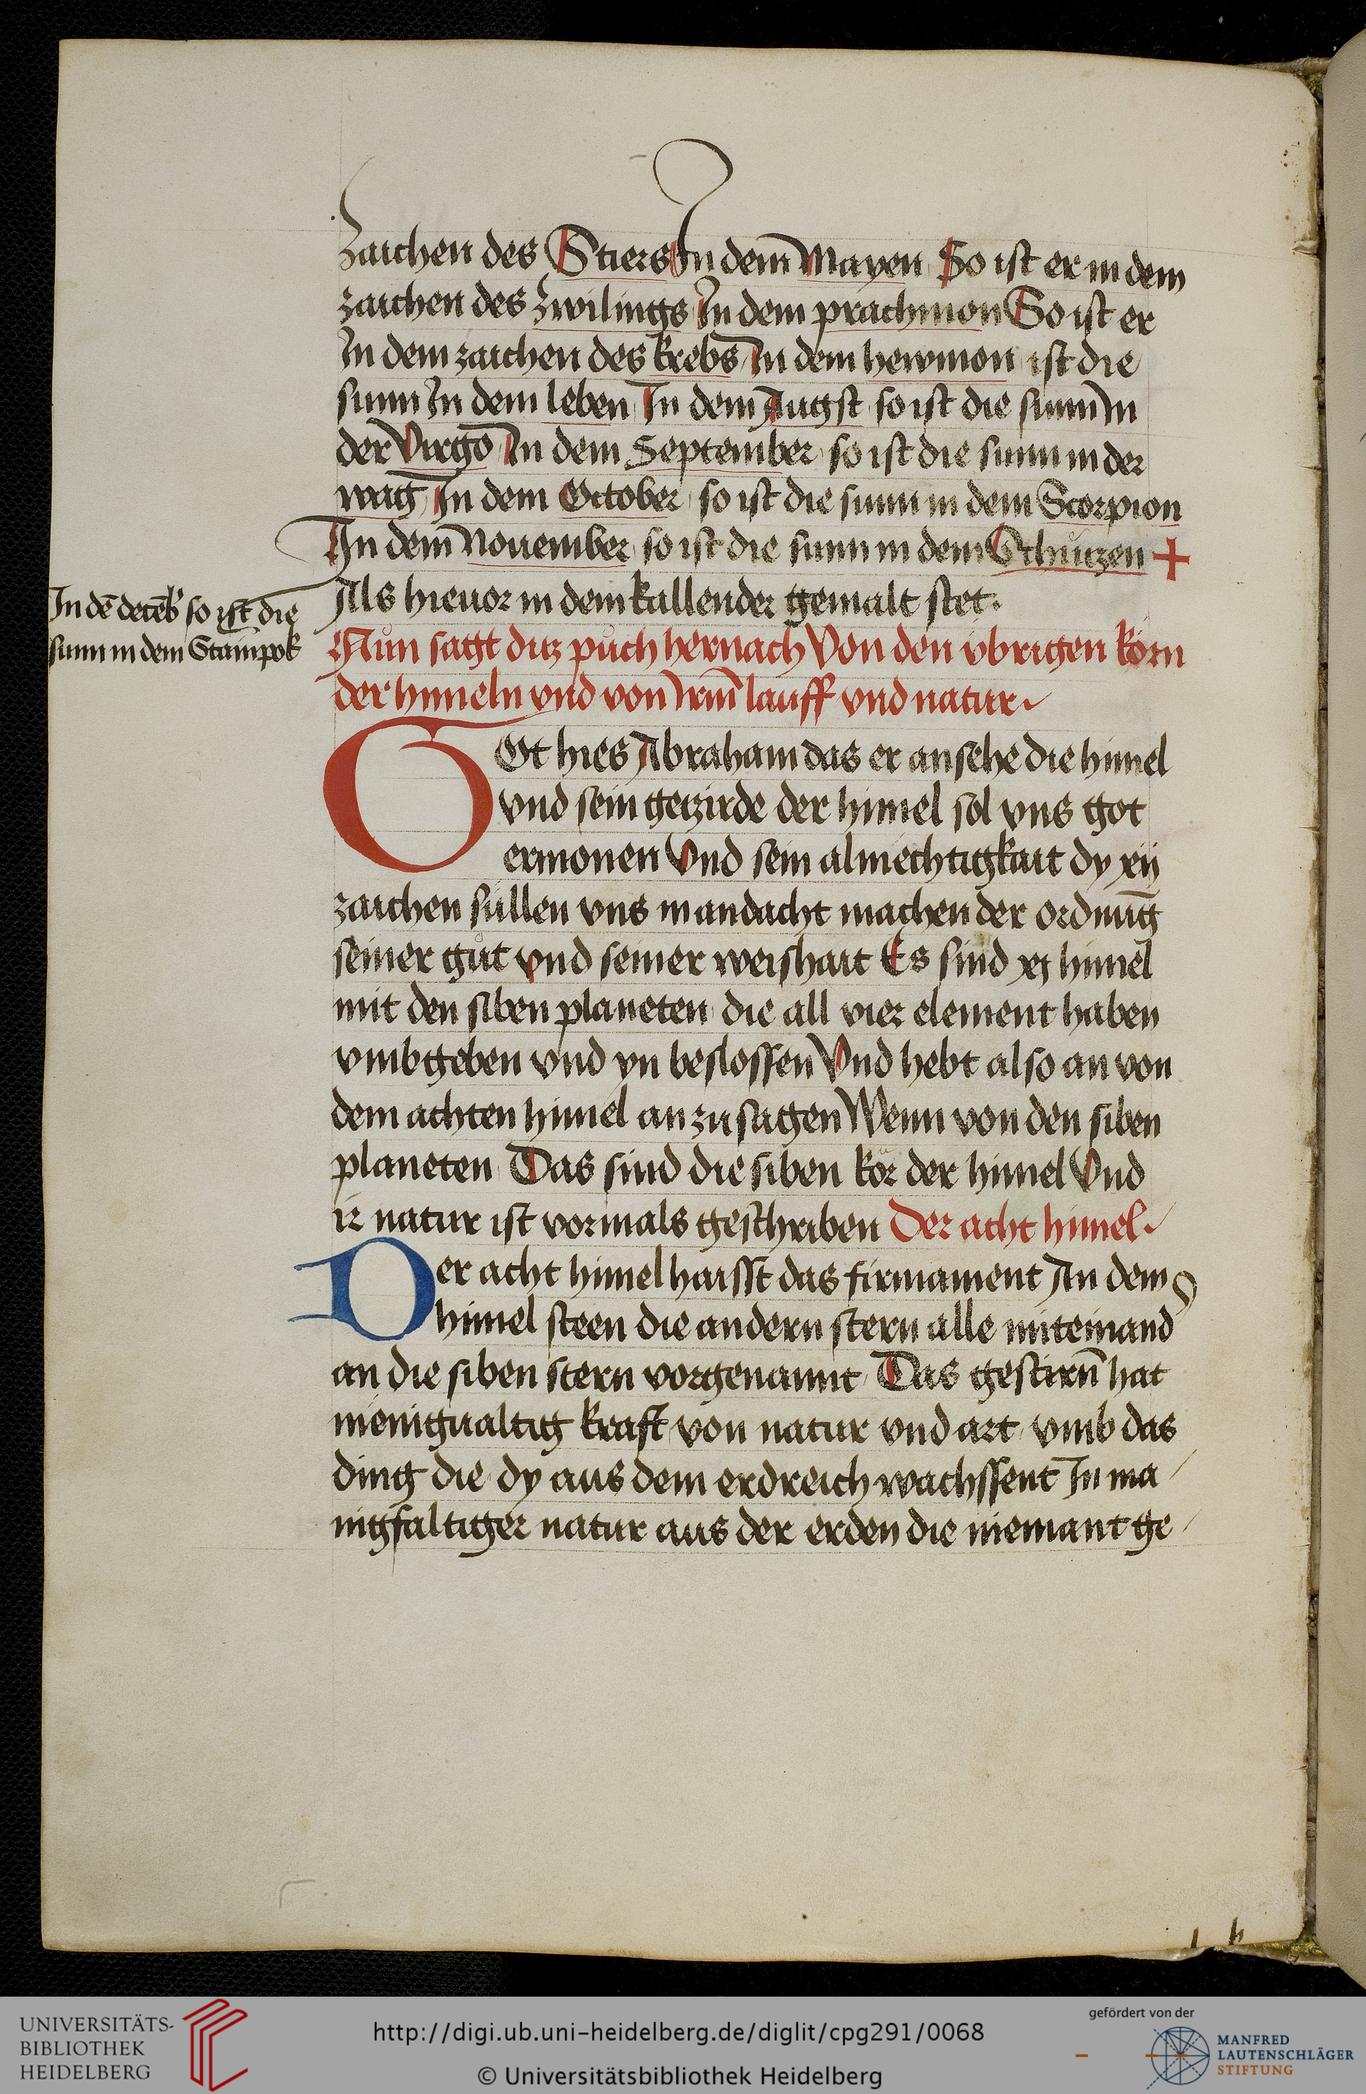 Zaichen des Stiers In dem Mayen So ist er in dem
zaichen des Zwilings In dem prachmon So ist er
In dem zaichen des krebs In dem hewmon ist die
sunn In dem leben In dem Augst so ist die sunn In
der Virgo In dem September so ist die sunn in der
wag In dem October so ist die sunn in dem Scorpion
In dem Nouember so ist die sunn in dem Schuczen +
In dē decēb' so ist die
sunn in dem Stainpok
Als hieuor in dem kallender gemalt stet.
Nun sagt ditz puch hernach Von den ybrigen körn
der himeln vnd von irm̄ lauff vnd natur
Got hies Abraham das er ansehe die himel
vnd sein getzirde der himel sol vns got
ermonen Vnd sein almechtigkait dy xij
zaichen süllen vns in andacht machen der ordnūg
seiner güt vnd seiner weishait Es sind xj himel
mit den siben planeten die all vier element haben
vmbgeben vnd yn beslossen Vnd hebt also an von
dem achten himel an zu sagen Wenn von den siben
planeten Das sind die siben kör der himel Vnd
ir natur ist vormals geschriben Der acht himel
Der acht himel haisst das firmament An dem
himel steen die andern stern alle miteinand
an die siben stern vorgenannt Das gestirn̄ hat
menigualtig kraft von natur vnd art vmb das
ding die dy aus dem erdreich wachssent In ma
nigfaltiger natur aus der erden die niemant ge
UNIVERSITÄTS-
BIBLIOTHEK
HEIDELBERG
http://digi.ub.uni-heidelberg.de/diglit/cpg291/0068
© Universitätsbibliothek Heidelberg
gefördert von der
MANFRED
LAUTENSCHLÄGER
STIFTUNG